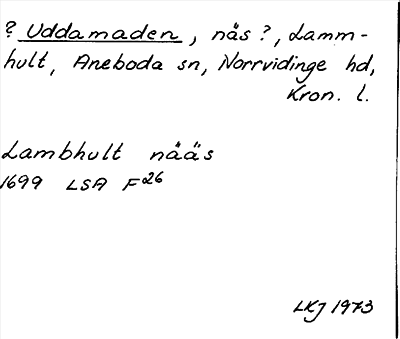 ? Uddamaden, näs?, Lamm-
hult, Aneboda sn, Norrvidinge hd,
Kron. l.
Lambhult nåås
1699 LSA F26
LKJ 1973